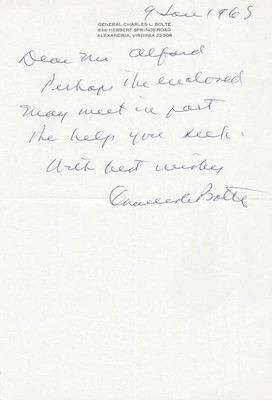 9 Jan 1968
GENERAL CHARLES L. BOLTE
836 HERBERT SPRINGS ROAD
ALEXANDRIA, VIRGINIA 22308
Dear Mr Alford
Perhaps the enclosed
may meet in part
the help you seek.
With best wishes
Charles L Bolte